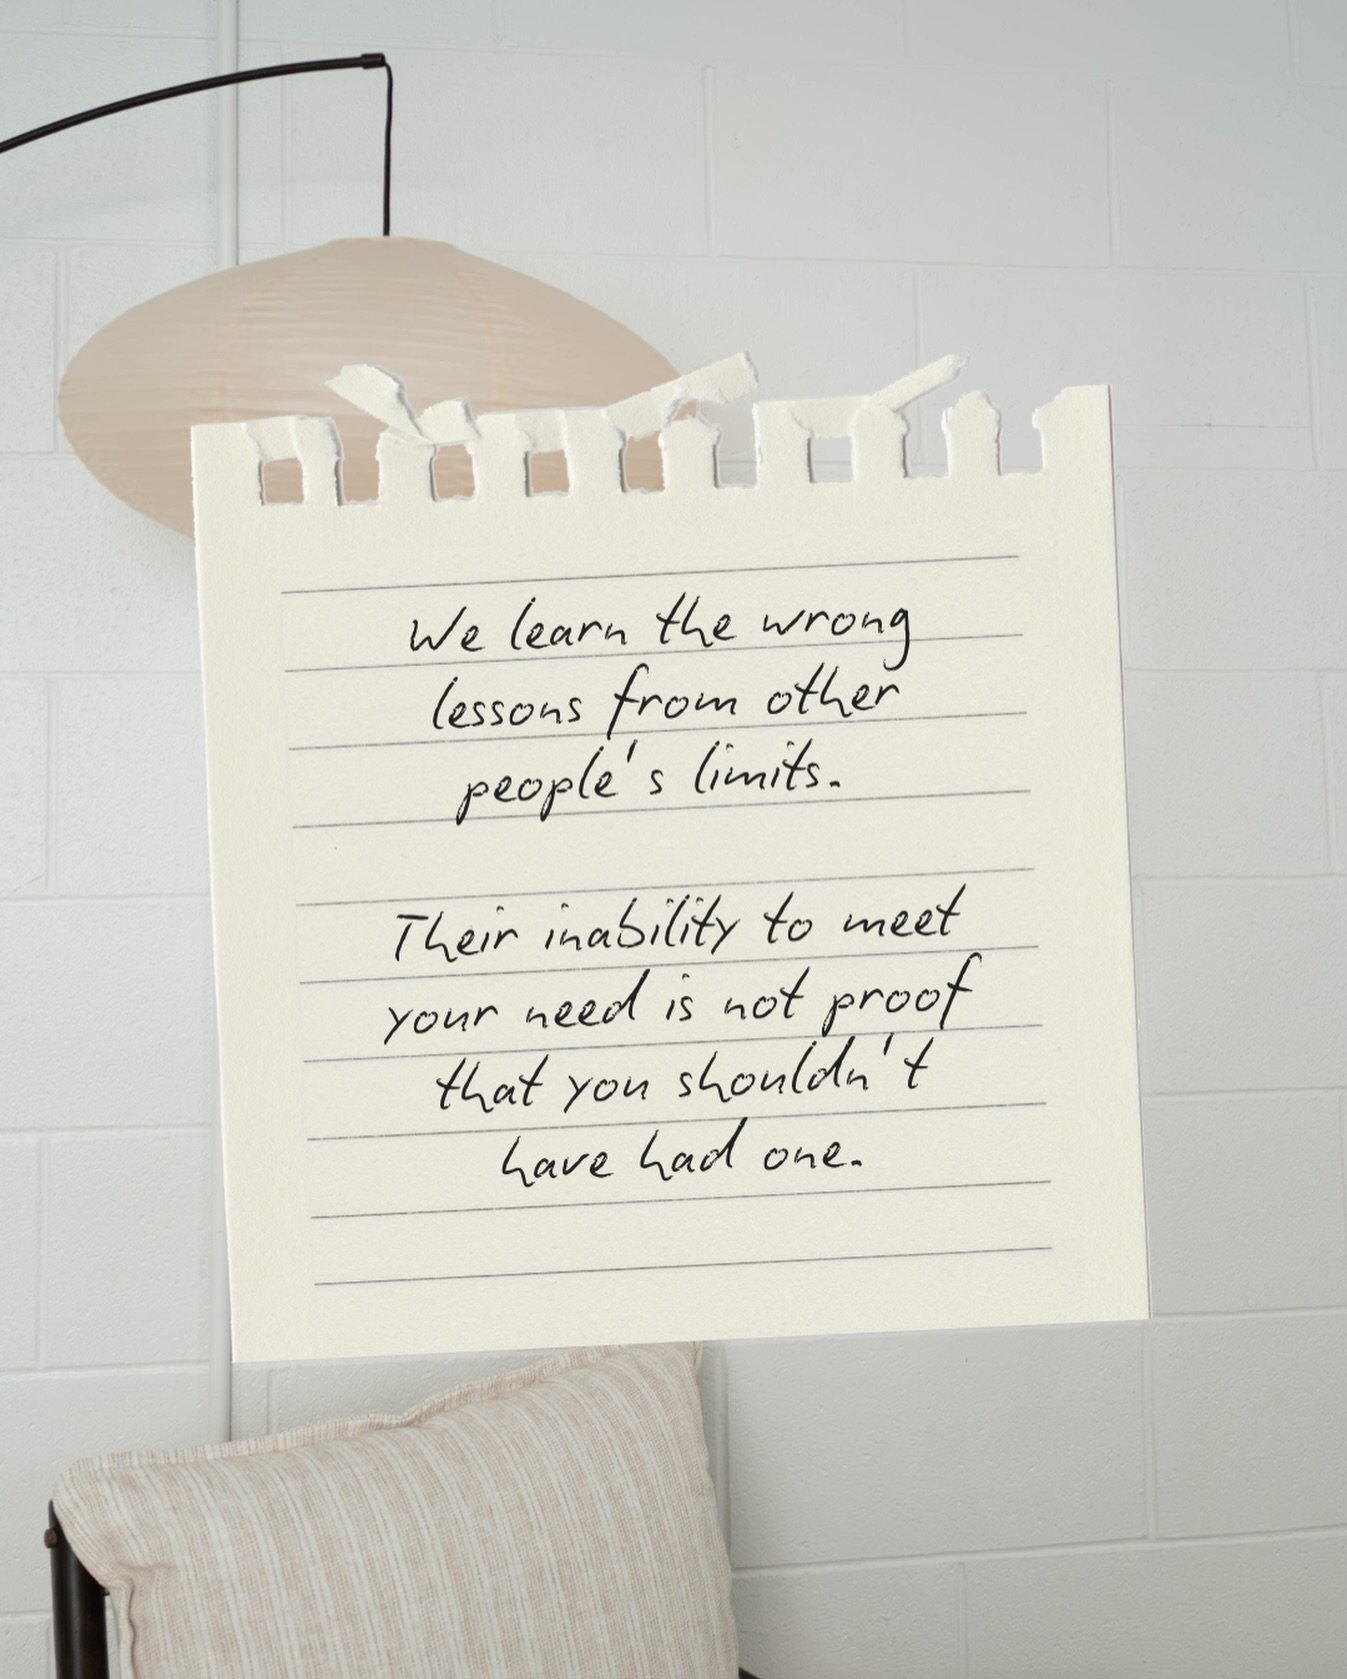 We learn the wrong
lessons from other
people's limits.
Their inability to meet
your need is not proof
that you shouldn't
have had one.